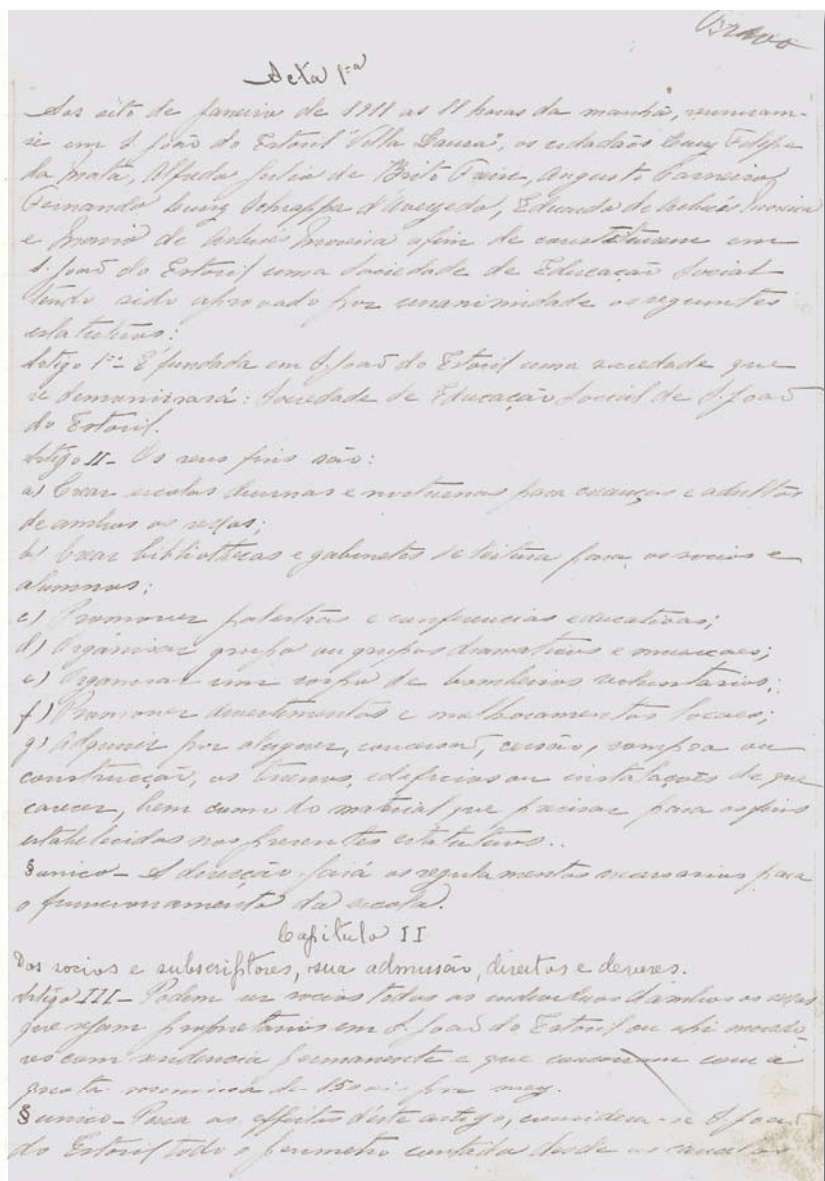 Acta 1ª
Aos oito de Janeiro de 1911 as 11 horas da manhã, reuniram-
se em S. João do Estoril "Villa Laura", os cidadãos Luiz Filippe
da Mata, Alfredo Julio de Brito Freire, Augusto Carneiro,
Fernando Luiz d'Azevedo, Eduardo de Moreira
e Mario de Moreira afim de constituirem em
S. João do Estoril uma Sociedade de Educação Social
tendo sido aprovado por unanimidade os seguintes
estatutos:
Artigo 1º - É fundada em S. João do Estoril uma sociedade que
se denominará: Sociedade de Educação Social de S. João
do Estoril.
Artigo II - Os seus fins são:
a) Crear escolas diurnas e nocturnas para creanças e adultos
de ambos os sexos;
b) Crear bibliothecas e gabinetes de leitura para os socios e
alumnos;
c) Promover palestras e conferencias educativas;
d) Organisar grupo ou grupos dramaticos e musicaes;
e) Organisar um corpo de bombeiros voluntarios;
f) Promover divertimentos e melhoramentos locaes;
g) Adquirir por aluguer, concessão, cessão, compra ou
construcção, os terrenos, edificios ou installações de que
carecer, bem como do material que precisar para os fins
estabelecidos nos presentes estatutos..
§ unico - A direcção fará os regulamentos necessarios para
o funcionamento da escola.
Capitulo II
Dos socios e subscriptores, sua admissão, direitos e deveres.
Artigo III - Podem ser socios todos os individuos d'ambos os sexos
que sejam proprietarios em S. João do Estoril ou ahi
com residencia permanente e que concorram com a
de 150 reis por mez.
§ unico - Para os effeitos d'este artigo, considera-se S. João
do Estoril todo o perimetro contado desde